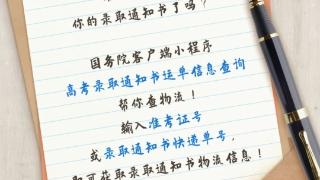 你的录取通知书了吗？
国务院客户端小程序
高考录取通知书运单信息查询
帮你查物流！
输入准考证号
或录取通知书快递单号，
即可获取录取通知书物流信息！